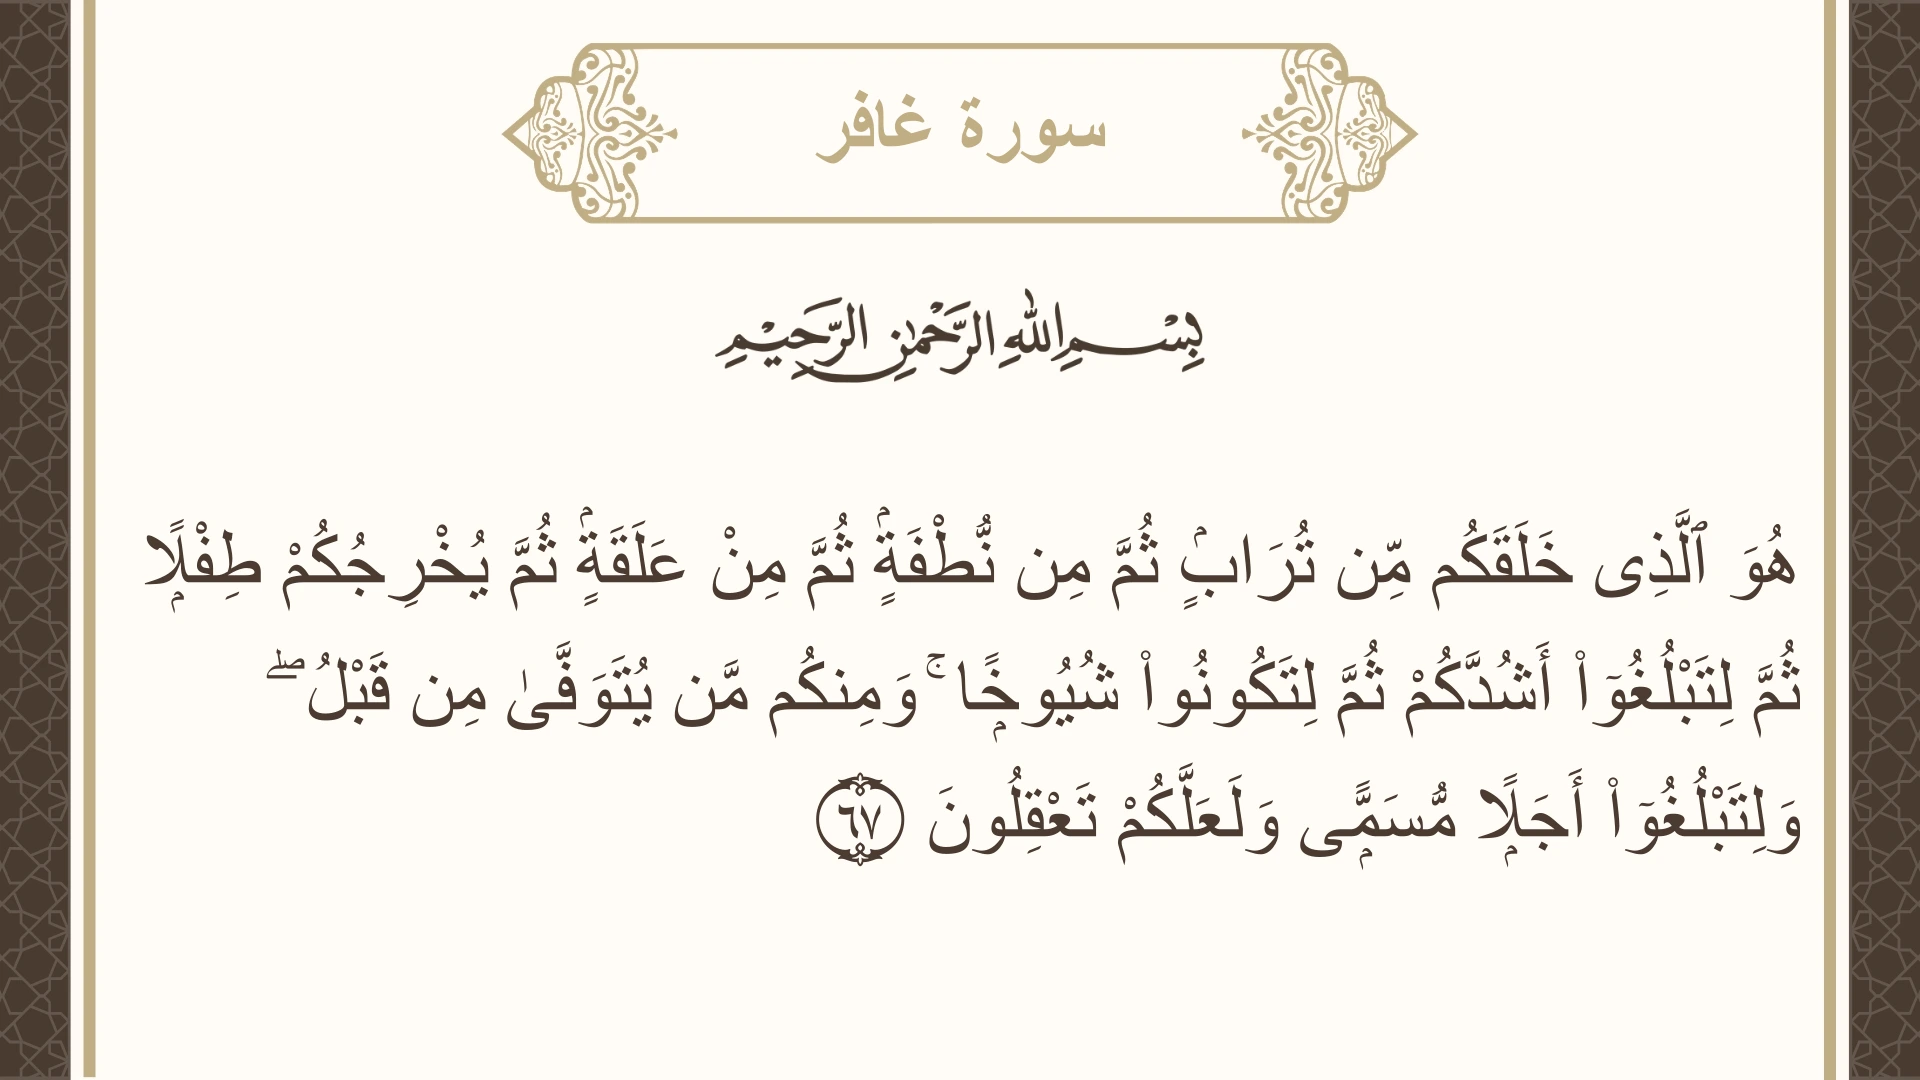 سورة غافر
بِسْمِ اللهِ الرَّحْمٰنِ الرَّحِيْمِ
هُوَ ٱلَّذِى خَلَقَكُم مِّن تُرَابٍۢ ثُمَّ مِن نُّطْفَةٍۢ ثُمَّ مِنْ عَلَقَةٍۢ ثُمَّ يُخْرِجُكُمْ طِفْلًۭا
ثُمَّ لِتَبْلُغُوٓا۟ أَشُدَّكُمْ ثُمَّ لِتَكُونُوا۟ شُيُوخًۭا ۚ وَمِنكُم مَّن يُتَوَفَّىٰ مِن قَبْلُ ۖ
وَلِتَبْلُغُوٓا۟ أَجَلًۭا مُّسَمًّۭى وَلَعَلَّكُمْ تَعْقِلُونَ ٦٧